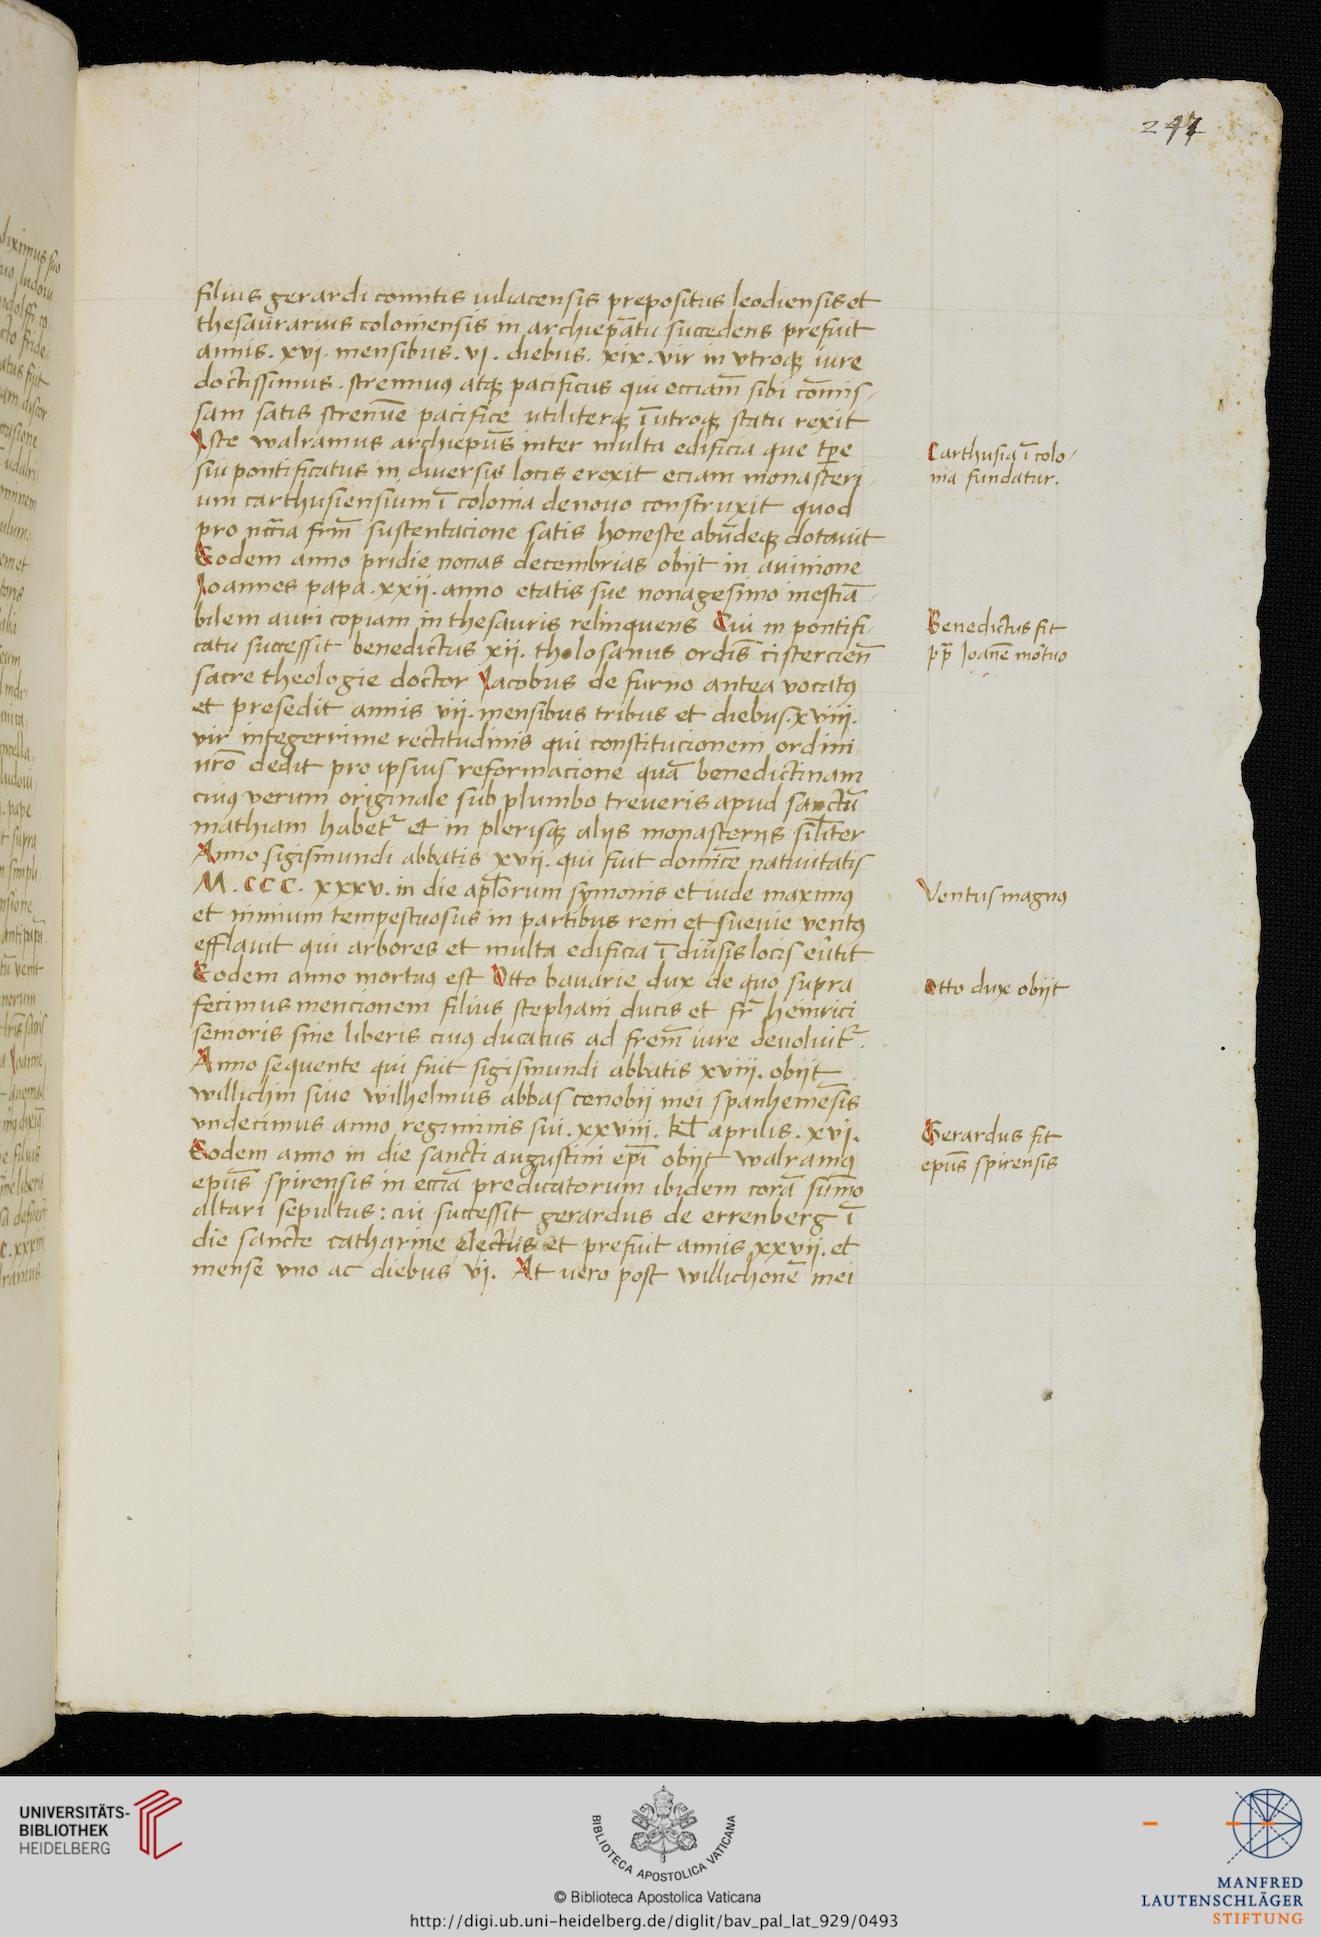 247
filius gerardi comitis iuliacensis prepositus leodiensis et
thesaurarius coloniensis in archiep̄atu succedens prefuit
annis . xvi . mensibus . vi . diebus . xix . vir in vtroqꝫ iure
doctissimus . strennuꝰ atqꝫ pacificus qui ecciam̄ sibi com̄is-
sam satis strenue pacifice utiliterqꝫ ī utroqꝫ statu rexit
Iste walramus archiep̄us inter multa edificia que tp̄e
sui pontificatus in diuersis locis erexit eciam monasteri-
um carthusiensium ī colonia denouo construxit quod
pro nc̄cia frm̄ sustentacione satis honeste abūdeqꝫ dotauit
Eodem anno pridie nonas decembrias obijt in auinione
Ioannes papa . xxii . anno etatis sue nonagesimo inestiā-
bilem auri copiam in thesauris relinquens Cui in pontifi-
catu successit benedictus xii . tholosanus ordis̄ cistercien̄
sacre theologie doctor Iacobus de furno antea vocatꝰ
et presedit annis vii . mensibus tribus et diebus . xviii .
vir integerrime rectitudinis qui constitucionem ordini
nr̄o dedit pro ipsius reformacione quā benedictinam
cuiꝰ verum originale sub plumbo treueris apud sanctū
mathiam habet᷑ et in plerisqꝫ alijs monasterijs sil̄iter
Anno sigismundi abbatis xvii . qui fuit domīce natiuitatis
M . CCC . xxxv . in die apl̄orum symonis et iude maximꝰ
et nimium tempestuosus in partibus reni et sueuie ventꝰ
efflauit qui arbores et multa edificia ī diu̓sis locis eu̓tit
Eodem anno mortuꝰ est Otto bauarie dux de quo supra
fecimus mencionem filius stephani ducis et fr̄ heinrici
senioris sine liberis cuiꝰ ducatus ad frem̄ iure deuoluit᷑ .
Anno sequente qui fuit sigismundi abbatis xviii . obijt
willichin siue wilhelmus abbas cenobii mei spanhemēsis
vndecimus anno regiminis sui . xxviii . kl̄ aprilis . xvi .
Eodem anno in die sancti augustini ep̄i obijt walramꝰ
ep̄us spirensis in ecciā predicatorum ibidem corā sum̄o
altari sepultus : cui successit gerardus de errenberg ī
die sancte catharine electus et prefuit annis xxvii . et
mense vno ac diebus vi . At vero post willichonē mei
Carthusia ī colo-
nia fundatur .
Benedictus fit
pp̄ Joanē mōtuo
Ventus magnꝰ
Otto dux obijt
Gerardus fit
ep̄us spirensis
UNIVERSITÄTS-
BIBLIOTHEK
HEIDELBERG
BIBLIOTECA APOSTOLICA VATICANA
© Biblioteca Apostolica Vaticana
http://digi.ub.uni-heidelberg.de/diglit/bav_pal_lat_929/0493
MANFRED
LAUTENSCHLÄGER
STIFTUNG